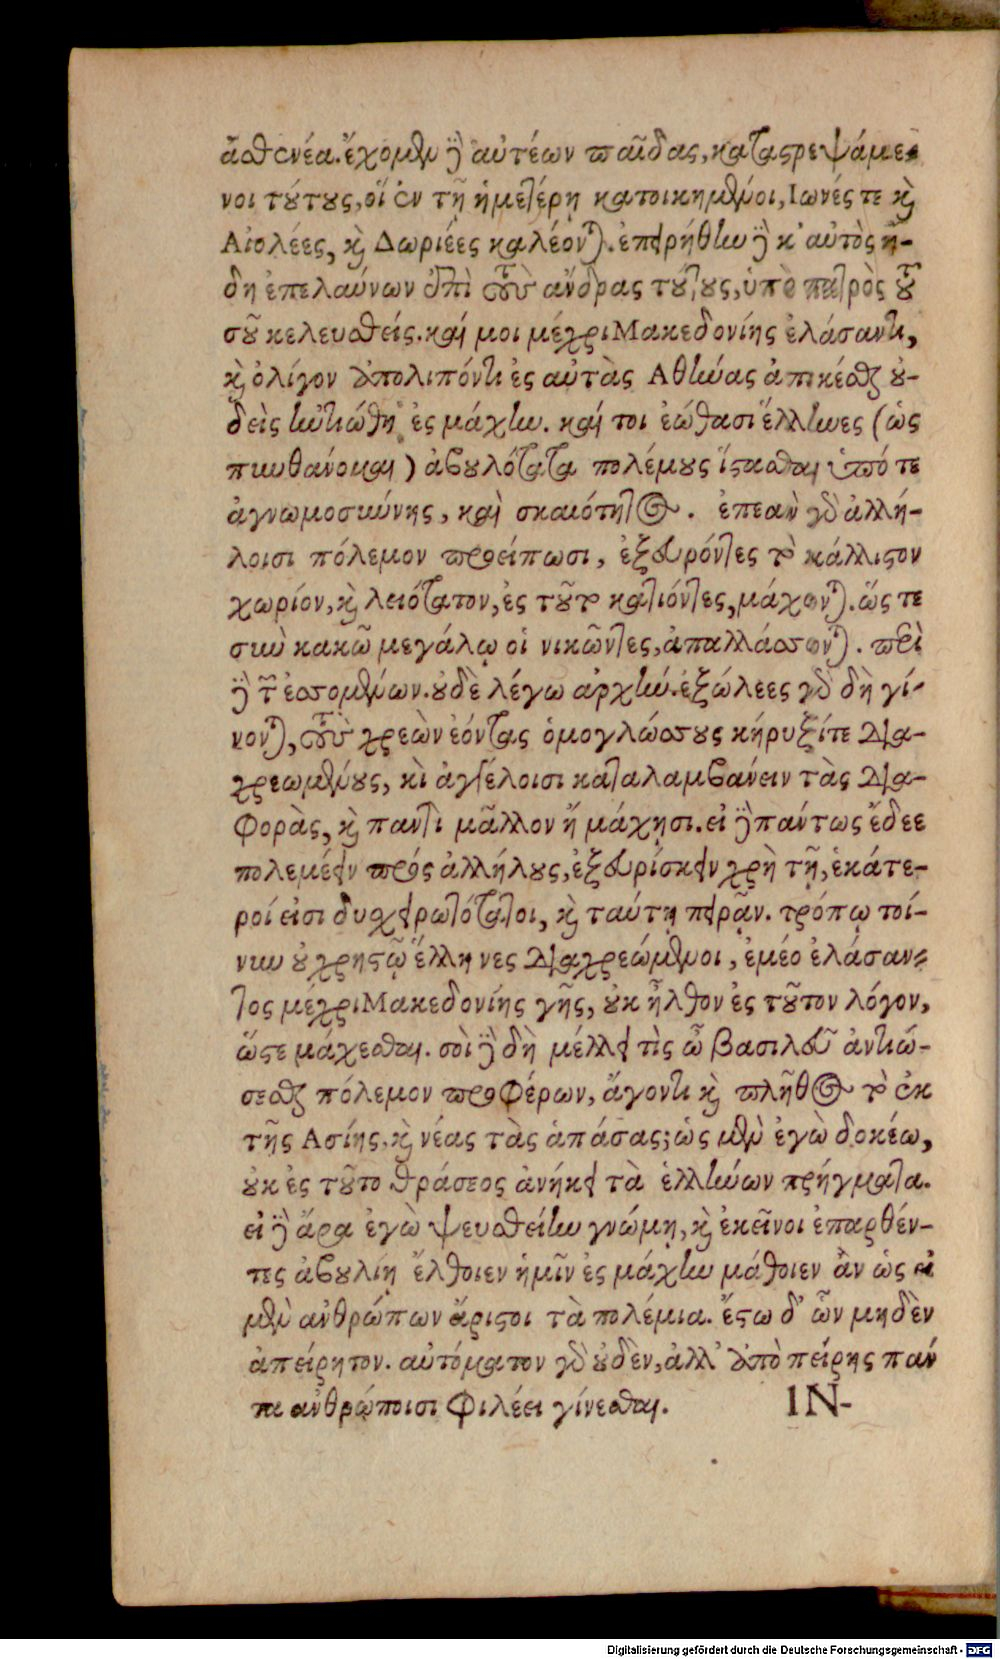 ἀσθενέα. ἔχομεν δὲ αὐτέων παῖδας, καταστρεψάμε-
νοι τούτους, οἳ ἐν τῇ ἡμετέρῃ κατοικημένοι, Ιωνές τε καὶ
Αἰολέες, καὶ Δωριέες καλέονται. ἐπειρήθην δὲ κ' αὐτὸς ἤ-
δη ἐπελαύνων ἐπὶ τοὺς ἄνδρας τούτους, ὑπὸ πατρὸς τοῦ
σοῦ κελευσθείς. καί μοι μέχρι Μακεδονίης ἐλάσαντι,
καὶ ὀλίγον ἀπολιπόντι ἐς αὐτὰς Αθήνας ἀπικέσθαι οὐ-
δεὶς ἠντιώθη ἐς μάχην. καί τοι ἐώθασι ἕλληνες (ὡς
πυνθάνομαι) ἀβουλότατα πολέμους ἵστασθαι ὑπό τε
ἀγνωμοσύνης, καὶ σκαιότητος. ἐπεὰν γὰρ ἀλλή-
λοισι πόλεμον προείπωσι, ἐξευρόντες τὸ κάλλιστον
χωρίον, καὶ λειότατον, ἐς τοῦτο κατιόντες, μάχονται. ὥς τε
σὺν κακῷ μεγάλῳ οἱ νικῶντες, ἀπαλλάσσονται. περὶ
δὲ τῶν ἑσσομένων. οὐδὲ λέγω ἀρχήν. ἐξώλεες γὰρ δὴ γί-
νονται, τοὺς χρεὼν ἐόντας ὁμογλώσσους κήρυξί τε δια-
χρεωμένους, καὶ ἀγγέλοισι καταλαμβάνειν τὰς δια-
φορὰς, καὶ παντὶ μᾶλλον ἢ μάχῃσι. εἰ δὲ πάντως ἔδεε
πολεμέειν πρός ἀλλήλους, ἐξευρίσκειν χρὴ τῇ, ἑκάτε-
ροί εἰσι δυσχειρωτότατοι, καὶ ταύτῃ πειρᾷν. τρόπῳ τοί-
νυν οὐ χρηστῷ ἕλληνες διαχρεώμενοι, ἐμέο ἐλάσαν-
τος μέχρι Μακεδονίης γῆς, οὐκ ἦλθον ἐς τοῦτον λόγον,
ὥστε μάχεσθαι. σοὶ δὲ δὴ μέλλει τὶς ὦ βασιλεῦ ἀντιώ-
σεσθαι πόλεμον προφέρων, ἄγοντι καὶ πλῆθος τὸ ἐκ
τῆς Ασίης, καὶ νέας τὰς ἁπάσας; ὡς μὲν ἐγὼ δοκέω,
οὐκ ἐς τοῦτο θράσεος ἀνήκει τὰ ἑλλήνων πρήγματα.
εἰ δὲ ἄρα ἐγὼ ψευσθείην γνώμῃ, καὶ ἐκεῖνοι ἐπαρθέν-
τες ἀβουλίῃ ἔλθοιεν ἡμῖν ἐς μάχην μάθοιεν ἂν ὡς εἰ
μὲν ἀνθρώπων ἄριστοι τὰ πολέμια. ἔστω δ' ὦν μηδὲν
ἀπείρητον. αὐτόματον γὰρ οὐδὲν, ἀλλ' ἀπὸ πείρης πάν
τα ἀνθρώποισι φιλέει γίνεσθαι. ΙΝ-
Digitalisierung gefördert durch die Deutsche Forschungsgemeinschaft - DFG